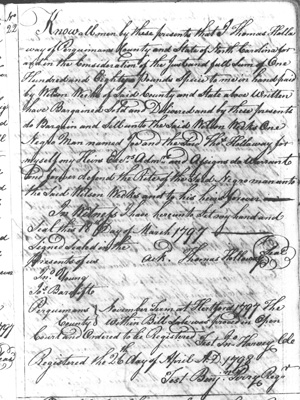 No
22
Know all men by these presents that I Thomas Hollo
way of Perquimans County and State of North Carolina for
and in the Consideration of the Just and full Sum of One
Hundred and Eighty Pounds Specie to me in hand paid
by Wilson Weeks of Said County and State above Written
have Bargained Sold and Delivered and by these presents
do Bargain and Sell unto the Said Wilson Weeks One
Negro Man named and the Said Thos Holloway for
myself my Heirs Exrs Admrs and Assigns do Warrant
and forever defend the Rite of the Said Negro man unto
the Said Wilson Weeks and to his heirs forever
In Witness I have hereunto Set my hand and
Seal this Day of March 1797
Signed Sealed in the
Presents of us Thomas Holloway Seal
Jno Young
Js
Perquimans November Term at Hertford 1797 The
County Within Bill Sale was proved in Open
Court and Ordered to be Registered Test Jno Harvey Clk
Registered the 26 day of April A.D. 1798
Test Benjn Perry Regr